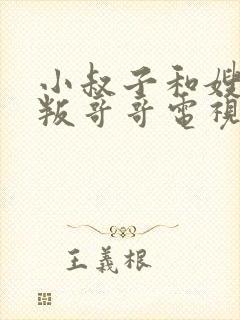 小叔子和嫂
叛哥哥電視
王義根